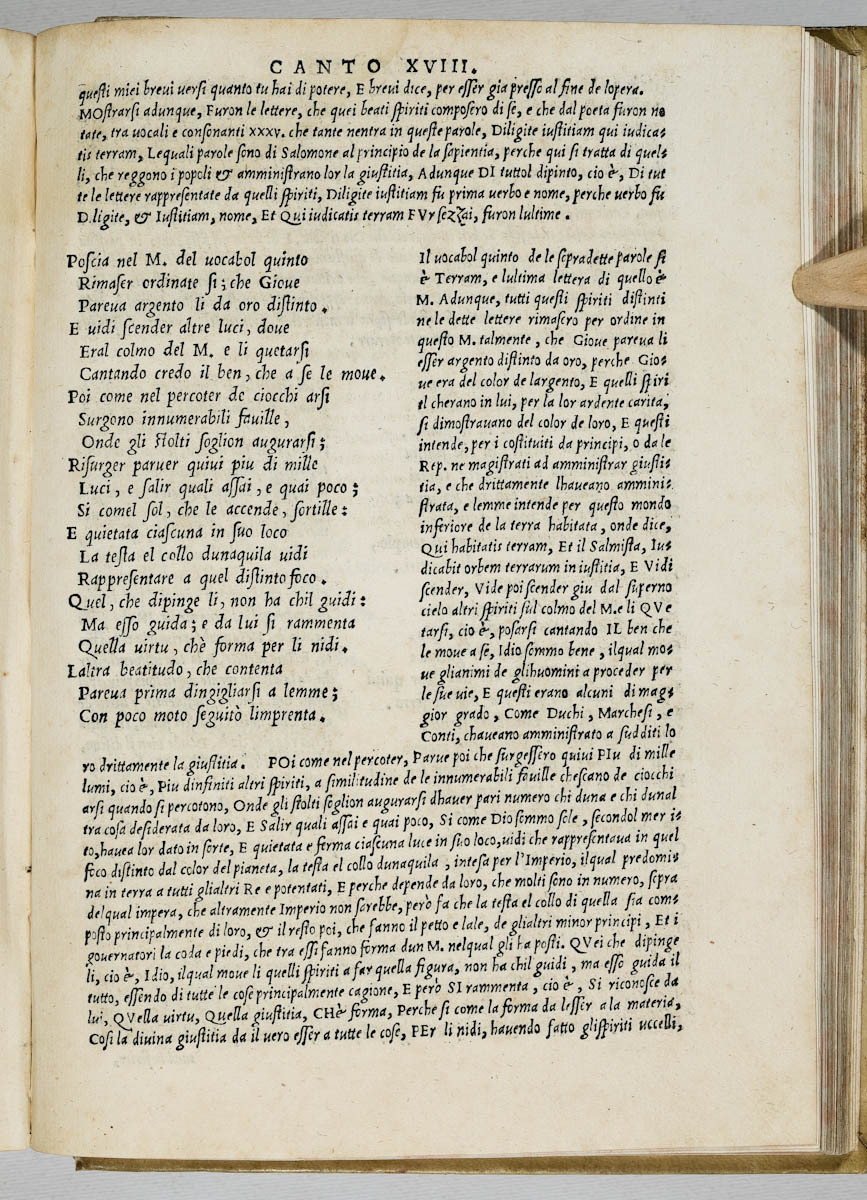 CANTO XVIII.
questi miei brevi versi quanto tu hai di potere, E brevi dice, per esser gia presso al fine de lopera.
MOstrarsi adunque, Furon le lettere, che quei beati spiriti composero di se, e che dal poeta furon no
tate, tra uocali e consonanti xxxv. che tante nentra in queste parole, Diligite iustitiam qui iudica-
tis terram, Lequali parole sono di Salomone al principio de la sapientia, perche qui si tratta di quel-
li, che reggono i popoli & amministrano lor la giustitia, Adunque DI tuttol dipinto, cio è, Di tut
te le lettere rappresentate da quelli spiriti, Diligite iustitiam fu prima uerbo e nome, perche uerbo fu
D.ligite, & Iustitiam, nome, Et Qui iudicatis terram FUr sezzai, furon lultime.
Poscia nel M. del uocabol quinto
Rimaser ordinate si; che Gioue
Pareua argento li da oro distinto.
E uidi scender altre luci, doue
Eral colmo del M. e li quetarsi
Cantando credo il ben, che a se le moue.
Poi come nel percoter de ciocchi arsi
Surgono innumerabili fauille,
Onde gli stolti soglion augurarsi;
Risurger paruer quiui piu di mille
Luci, e salir quali assai, e quai poco;
Si comel sol, che le accende, sortille:
E quietata ciascuna in suo loco
La testa el collo dunaquila uidi
Rappresentare a quel distinto foco.
Quel, che dipinge li, non ha chil guidi:
Ma esso guida; e da lui si rammenta
Quella uirtu, chè forma per li nidi.
Laltra beatitudo, che contenta
Pareua prima dingigliarsi a lemme;
Con poco moto seguitò limprenta.
Il uocabol quinto de le sepradette parole si
è Terram, e lultima lettera di quello è
M. Adunque, tutti questi spiriti distinti
ne le dette lettere rimasero per ordine in
questo M. talmente, che Gioue pareua li
esser argento distinto da oro, perche Gio-
ue era del color de largento, E quelli spiri
ti cherano in lui, per la lor ardente carita,
si dimostrauano del color de loro, E questi
intende, per i costituiti da principi, o da le
Rep. ne magistrati ad amministrar giusti-
tia, e che drittamente lhaueano ammini-
strata, e lemme intende per questo mondo
inferiore de la terra habitata, onde dice,
Qui habitatis terram, Et il Salmista, Iu-
dicabit orbem terrarum in iustitia, E Vidi
scender, Vide poi scender giu dal superno
cielo altri spiriti sul colmo del M. e li QVe
tarsi, cio è, posarsi cantando IL ben che
le moue a se, Idio sommo bene, ilqual mo-
ue glianimi de glihuomini a proceder per
le sue uie, E questi erano alcuni di mag-
gior grado, Come Duchi, Marchesi, e
Conti, chaueano amministrato a sudditi lo
ro drittamente la giustitia. POi come nel percoter, Parue poi che surgessero quiui PIu di mille
lumi, cio è, Piu dinfiniti altri spiriti, a similitudine de le innumerabili fauille chescano de ciocchi
arsi quando si percotono, Onde gli stolti soglion augurarsi dhauer pari numero chi duna e chi dunal
tra cosa desiderata da loro, E Salir quali assai e quai poco, Si come Dio sommo sole, secondol mer i-
to, hauea lor dato in sorte, E quietata e ferma ciascuna luce in suo loco, uidi che rappresentaua in quel
foco distinto dal color del pianeta, la testa el collo dunaquila, intesa per l'Imperio, ilqual predomi-
na in terra a tutti glialtri Re e potentati, E perche depende da loro, che molti sono in numero, sopra
delqual impera, che altramente Imperio non sarebbe, però fa che la testa el collo di quella sia com-
posto principalmente di loro, & il resto poi, che fanno il petto e lale, de glialtri minor principi, Et i
gouernatori la coda e piedi, che tra essi fanno forma dun M. nelqual gli ha posti. QVei che dipinge
li, cio è, Idio, ilqual moue li quelli spiriti a far quella figura, non ha chil guidi, ma esso guida il
tutto, essendo di tutte le cose principalmente cagione, E però SI rammenta, cio è, Si riconosce da
lui, QVella uirtu, Quella giustitia, CHè forma, Perche si come la forma da lesser a la materia,
Cosi la diuina giustitia da il uero esser a tutte le cose, PEr li nidi, hauendo fatto glispiriti uccelli,